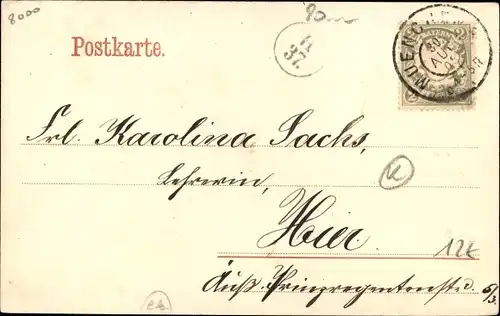 8000
90
Postkarte.
11
37.
MUENCHEN
Frl. Karolina Sachs,
Lehrerin,
K
Hier.
12E
Äuß. Prinzregentenstr. 6/3.